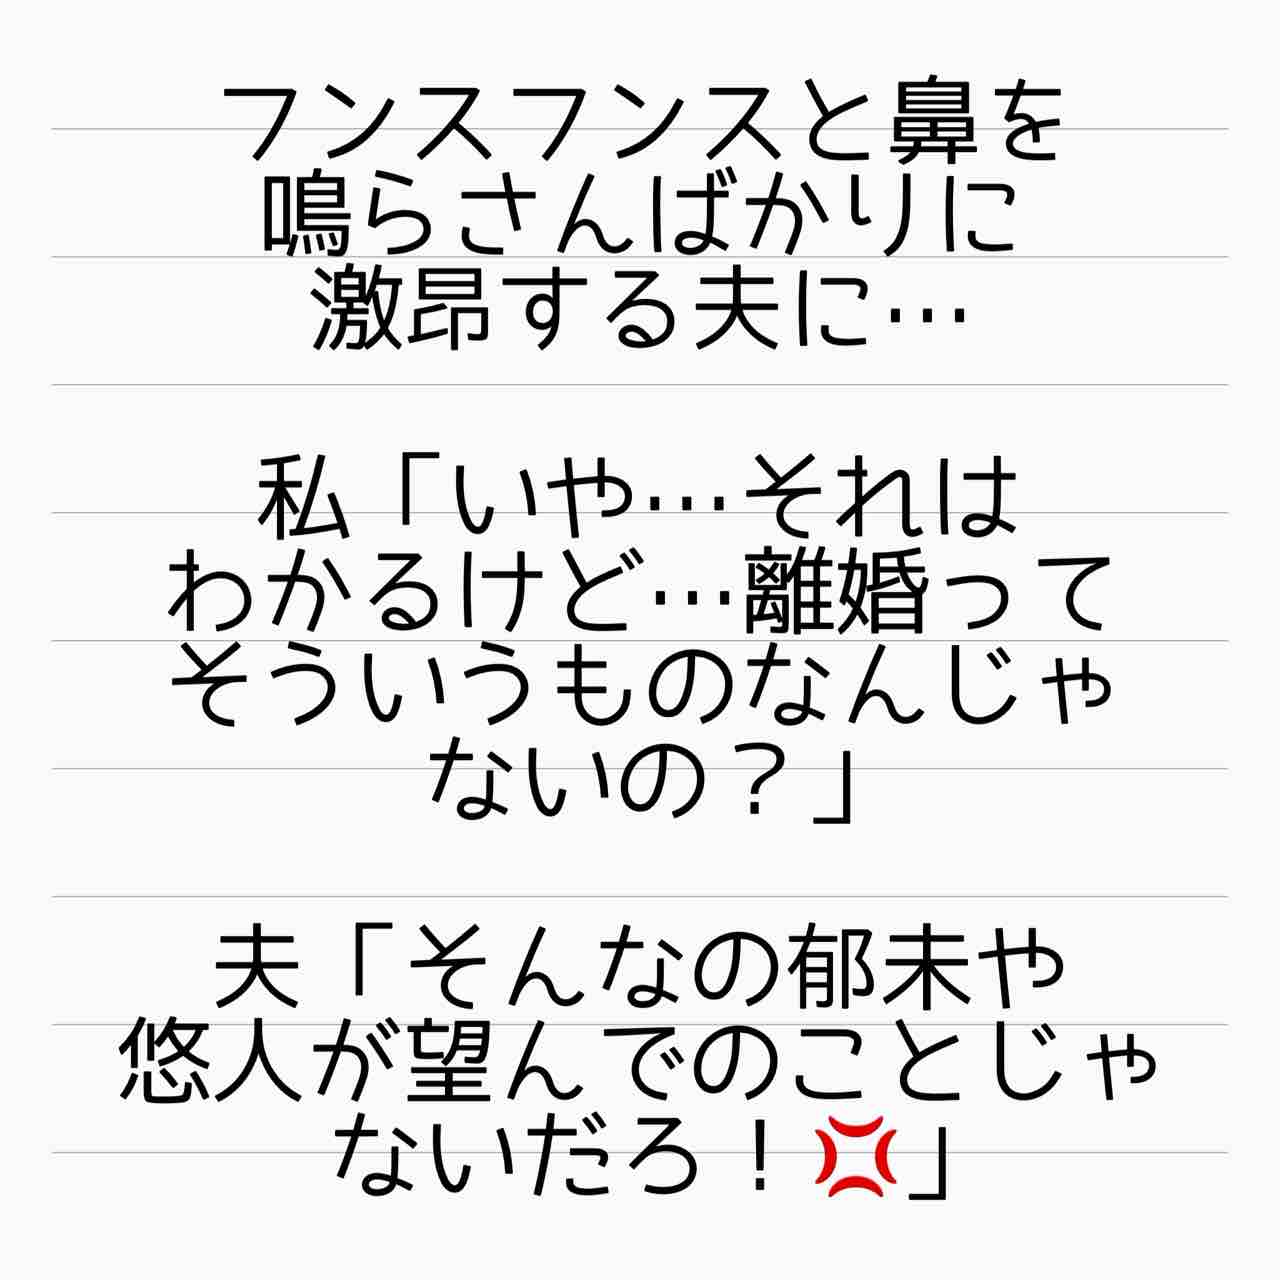 フンスフンスと鼻を
鳴らさんばかりに
激昂する夫に…
私「いや…それは
わかるけど…離婚って
そういうものなんじゃ
ないの？」
夫「そんなの郁未や
悠人が望んでのことじゃ
ないだろ！💢」